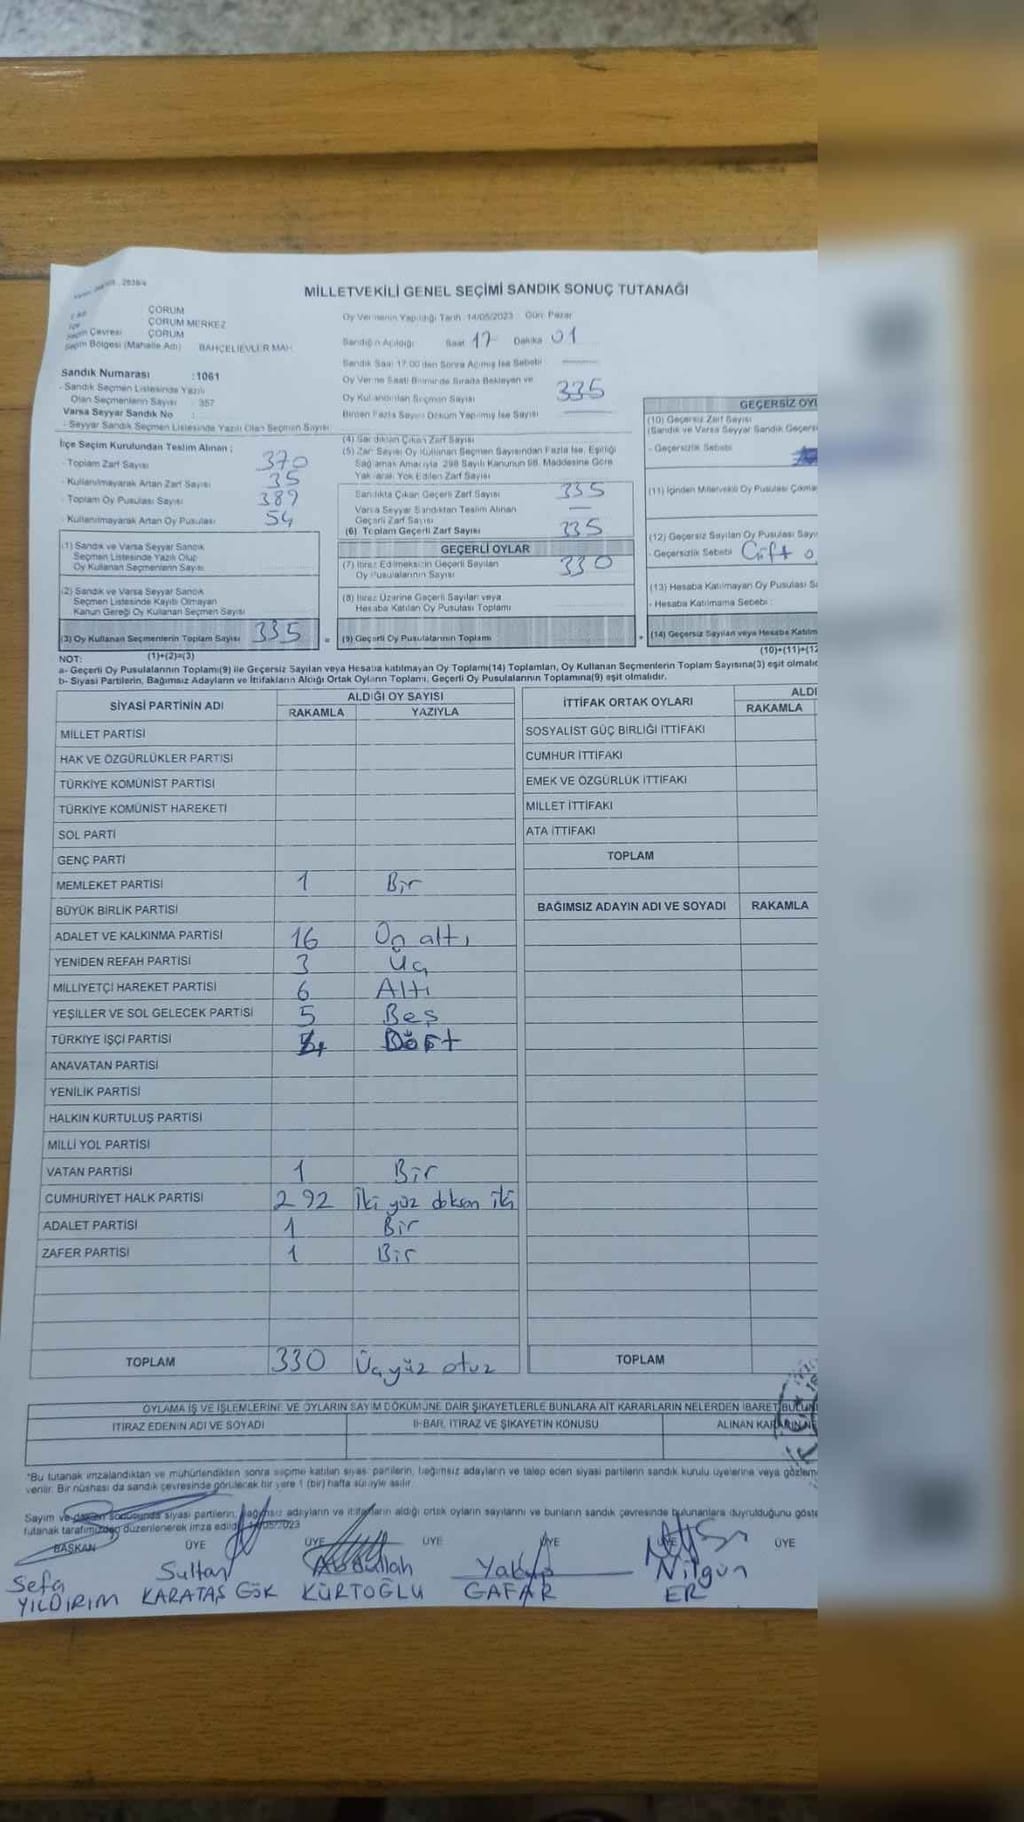 MİLLETVEKİLİ GENEL SEÇİMİ SANDIK SONUÇ TUTANAĞI
ÇORUM
İlçe ÇORUM MERKEZ
Seçim Çevresi ÇORUM
Seçim Bölgesi (Mahalle Adı) BAHÇELİEVLER MAH.
Oy Vermenin Yapıldığı Tarih :14/05/2023 Gün: Pazar
Sandığın Açıldığı Saat 17 Dakika 01
Sandık Saat 17.00'den Sonra Açılmış İse Sebebi
Oy Verme Saati Bitiminde Sırada Bekleyen ve
Oy Kullandırılan Seçmen Sayısı 335
Birden Fazla Sayım Döküm Yapılmış İse Sayısı
Sandık Numarası :1061
- Sandık Seçmen Listesinde Yazılı
Olan Seçmenlerin Sayısı : 357
Varsa Seyyar Sandık No
- Seyyar Sandık Seçmen Listesinde Yazılı Olan Seçmen Sayısı
İlçe Seçim Kurulundan Teslim Alınan ;
- Toplam Zarf Sayısı 370
- Kullanılmayarak Artan Zarf Sayısı 35
- Toplam Oy Pusulası Sayısı 389
- Kullanılmayarak Artan Oy Pusulası 54
(1) Sandık ve Varsa Seyyar Sandık
Seçmen Listesinde Yazılı Olup
Oy Kullanan Seçmenlerin Sayısı
(2) Sandık ve Varsa Seyyar Sandık
Seçmen Listesinde Kayıtlı Olmayan
Kanun Gereği Oy Kullanan Seçmen Sayısı
(3) Oy Kullanan Seçmenlerin Toplam Sayısı 335
(4) Sandıktan Çıkan Zarf Sayısı
(5) Zarf Sayısı Oy Kullanan Seçmen Sayısından Fazla İse, Eşitliği
Sağlamak Amacıyla 298 Sayılı Kanunun 98. Maddesine Göre
Yakılarak Yok Edilen Zarf Sayısı
Sandıkta Çıkan Geçerli Zarf Sayısı 335
Varsa Seyyar Sandıktan Teslim Alınan
Geçerli Zarf Sayısı
(6) Toplam Geçerli Zarf Sayısı 335
GEÇERLİ OYLAR
(7) İtiraz Edilmeksizin Geçerli Sayılan
Oy Pusulalarının Sayısı 330
(8) İtiraz Üzerine Geçerli Sayılan veya
Hesaba Katılan Oy Pusulası Toplamı
= (9) Geçerli Oy Pusulalarının Toplamı
GEÇERSİZ OYL
(10) Geçersiz Zarf Sayısı
(Sandık ve Varsa Seyyar Sandık Geçers
- Geçersizlik Sebebi
(11) İçinden Milletvekili Oy Pusulası Çıkma
(12) Geçersiz Sayılan Oy Pusulası Sayı
- Geçersizlik Sebebi Çift o
(13) Hesaba Katılmayan Oy Pusulası S
- Hesaba Katılmama Sebebi :
+ (14) Geçersiz Sayılan veya Hesaba Katılm
NOT: (1)+(2)=(3) (10)+(11)+(12
a- Geçerli Oy Pusulalarının Toplamı(9) ile Geçersiz Sayılan veya Hesaba katılmayan Oy Toplamı(14) Toplamları, Oy Kullanan Seçmenlerin Toplam Sayısına(3) eşit olmalıd
b- Siyasi Partilerin, Bağımsız Adayların ve İttifakların Aldığı Ortak Oyların Toplamı, Geçerli Oy Pusulalarının Toplamına(9) eşit olmalıdır.
SİYASİ PARTİNİN ADI ALDIĞI OY SAYISI
RAKAMLA YAZIYLA
MİLLET PARTİSİ
HAK VE ÖZGÜRLÜKLER PARTİSİ
TÜRKİYE KOMÜNİST PARTİSİ
TÜRKİYE KOMÜNİST HAREKETİ
SOL PARTİ
GENÇ PARTİ
MEMLEKET PARTİSİ 1 Bir
BÜYÜK BİRLİK PARTİSİ
ADALET VE KALKINMA PARTİSİ 16 On altı
YENİDEN REFAH PARTİSİ 3 Üç
MİLLİYETÇİ HAREKET PARTİSİ 6 Altı
YEŞİLLER VE SOL GELECEK PARTİSİ 5 Beş
TÜRKİYE İŞÇİ PARTİSİ 4 Dört
ANAVATAN PARTİSİ
YENİLİK PARTİSİ
HALKIN KURTULUŞ PARTİSİ
MİLLİ YOL PARTİSİ
VATAN PARTİSİ 1 Bir
CUMHURİYET HALK PARTİSİ 292 İki yüz doksan iki
ADALET PARTİSİ 1 Bir
ZAFER PARTİSİ 1 Bir
TOPLAM 330 Üç yüz otuz
İTTİFAK ORTAK OYLARI ALDI
RAKAMLA
SOSYALİST GÜÇ BİRLİĞİ İTTİFAKI
CUMHUR İTTİFAKI
EMEK VE ÖZGÜRLÜK İTTİFAKI
MİLLET İTTİFAKI
ATA İTTİFAKI
TOPLAM
BAĞIMSIZ ADAYIN ADI VE SOYADI RAKAMLA
TOPLAM
OYLAMA İŞ VE İŞLEMLERİNE VE OYLARIN SAYIM DÖKÜMÜNE DAİR ŞİKAYETLERLE BUNLARA AİT KARARLARIN NELERDEN İBARET BULUN
İTİRAZ EDENİN ADI VE SOYADI İHBAR, İTİRAZ VE ŞİKAYETİN KONUSU ALINAN KARARIN
*Bu tutanak imzalandıktan ve mühürlendikten sonra seçime katılan siyasi partilerin, bağımsız adayların ve talep eden siyasi partilerin sandık kurulu üyelerine veya gözlem
verilir. Bir nüshası da sandık çevresinde görülecek bir yere 1 (bir) hafta süreyle asılır.
Sayım ve döküm sonucunda siyasi partilerin, bağımsız adayların ve ittifakların aldığı ortak oyların sayılarını ve bunların sandık çevresinde bulunanlara duyrulduğunu göste
tutanak tarafımızdan düzenlenerek imza edildi. 14/05/2023
BAŞKAN ÜYE ÜYE ÜYE ÜYE ÜYE ÜYE
Sefa Sultan Abdullah Yakup Nilgün
YILDIRIM KARATAŞ GÖK KÜRTOĞLU GAFAR ER